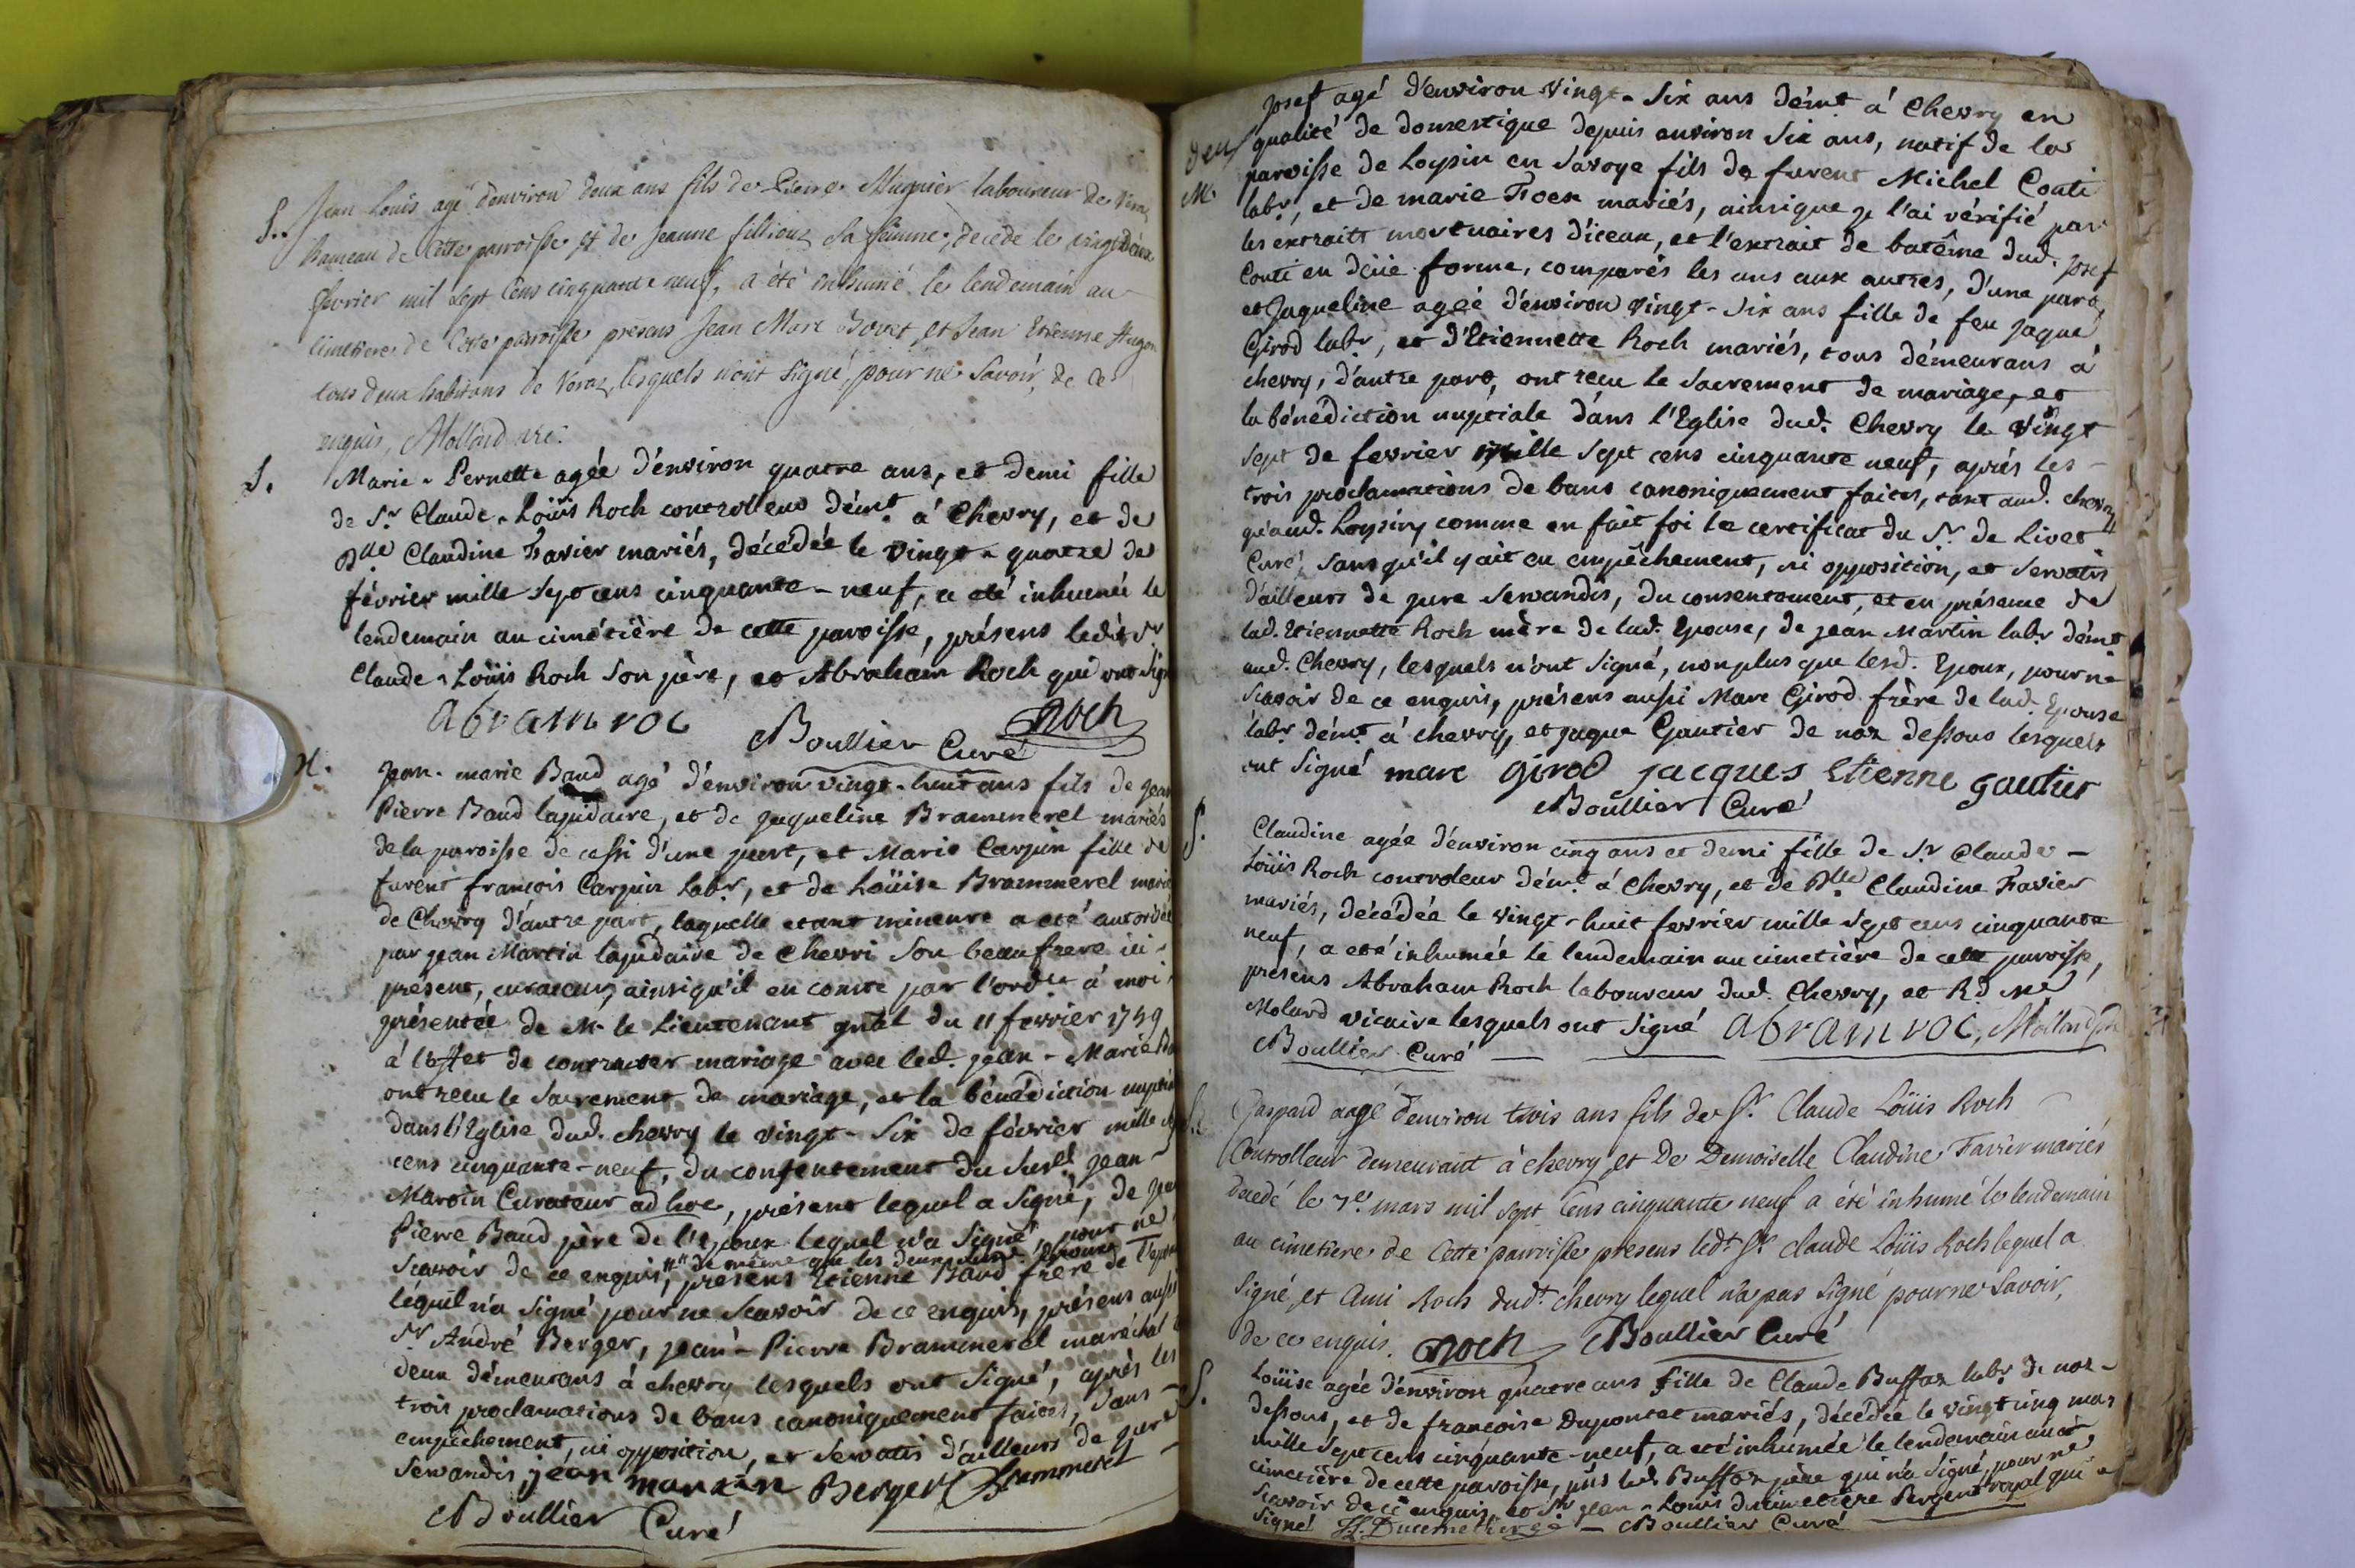 S. Jean Louis agé d'environ deux ans fils de Pierre Mugnier laboureur de Veraz
hameau de Cette paroisse et de Jeanne fillioux Sa femme, decedé le vingt deux
fevrier mil Sept Cens cinquante neuf, a été inhumé le lendemain au
cimetiere de Cette paroisse presens Jean Marc Bovet et Jean Etienne Hugon
tous deux habitans de Veraz, lesquels n'ont Signé, pour ne Savoir, de Ce
enquis, Mollard vic.
S. Marie-Pernette agée d'environ quatre ans, et demi fille
de Sr Claude-Loüis Roch controlleur démt à Chevry, et de
Dlle Claudine Favier mariés, décédée le vingt-quatre de
février mille Sept cens cinquante-neuf, a eté inhumée le
lendemain au cimétière de cette paroisse, présens ledit Sr
Claude-Loüis Roch Son père, et Abraham Roch qui ont Signé
abram roc Boullier Curé Roch
M. Jean-marie Baud agé d'environ vingt-huit ans fils de Jean
Pierre Baud lapidaire, et de Jaqueline Brammerel mariés
de la paroisse de cessi d'une part, et Marie Carpin fille de
furent françois Carpin labr, et de Loüise Brammerel mariés
de Chevry d'autre part, laquelle etant mineure a eté autorisée
par Jean Martin lapidaire de Chevri Son beaufrere ici-
présent, curateur, ainsiqu'il en conste par l'ordce à moi
présentée de Mr le Lieutenant gnâl du 11 fevrier 1759
à l'effet de contracter mariage avec led. Jean-Marie Baud
ont recu le Sacrement de mariage, et la bénédiction nuptiale
dans l'Eglise dud. chevry le vingt-Six de février mille Sept
cens cinquante-neuf, du consentement du Susd. Jean-
Martin Curateur ad hoc, présent lequel a Signé, de Jean
Pierre Baud père de l'epoux lequel n'a Signé, pour ne
# de même que les deux Susd. Epoux
Scavoir de ce enquis, # présens Etienne Baud frère de l'epoux
lequel n'a Signé pour ne Scavoir de ce enquis, présens aussi
Sr André Berger, Jean-Pierre Brammerel maréchal
deux démeurans à chevry lesquels ont Signé, après les
trois proclamations de bans canoniquement faites, Sans-
empêchement, ni opposition, et Servatis d'ailleurs de jure
Servandis jéan martin Berger Brammerel
Boullier Curé
Josef agé d'environ vingt-Six ans démt à Chevry en
qualité de domestique depuis environ Six ans, natif de la
M. paroisse de Loysin en Savoye fils de furent Michel Conti
labr, et de marie Foex mariés, ainsique je l'ai vérifié par
les extraits mortuaires d'iceux, et l'extrait de batême dud. Josef
Conti en düe forme, comparés les uns aux autres, d'une part,
et Jaqueline agée d'environ vingt-Six ans fille de feu Jaque
Girod labr, et d'Etiennette Roch mariés, tous démeurans à
chevry, d'autre part, ont recu le Sacrement de mariage, et
la bénédiction nuptiale dans l'Eglise dud. Chevry le vingt
Sept de fevrier mille Sept cens cinquante neuf, après les-
trois proclamations de bans canoniquement faites, tant aud. chevry
qu'aud. Loysin, comme en fait foi le certificat du Sr. de Livet
Curé, Sans qu'il y ait eu empêchement, ni opposition, et Servatis
d'ailleurs de jure Servandis, du consentement, et en présence de
lad. Etiennette Roch mère de lad. Epouse, de Jean Martin labr démt
aud. Chevry, lesquels n'ont Signé, non plus que lesd. Epoux, pour ne
Scavoir de ce enquis, présens aussi Marc Girod frère de lad. Epouse
labr démt à chevry, et Jaque Gautier de naz dessous lesquels
ont Signé marc girod jacques Etienne gautier
Boullier Curé
S. Claudine agée d'environ cinq ans et demi fille de Sr Claude-
Loüis Roch controleur démt à Chevry, et de Dlle Claudine Favier
mariés, décédée le vingt-huit fevrier mille Sept cens cinquante
neuf, a eté inhumée le lendemain au cimetière de cette paroisse,
présens Abraham Roch laboureur dud. Chevry, et Rd Me
Molard vicaire lesquels ont Signé abram roc, Mollard
Boullier Curé
Gaspard aagé d'environ trois ans fils de Sr. Claude Loüis Roch
Controlleur demeurant à chevry et De Demoiselle Claudine Favier mariés
decedé le 7e. mars mil Sept Cens cinquante neuf a été inhumé le lendemain
au cimetiere de Cette parroisse presens ledt Sr. claude Loüis Roch lequel a
Signé et Ami Roch dudt. chevry lequel n'a pas Signé pour ne Savoir,
de ce enquis. Roch Boullier Curé
S. Loüise agée d'environ quatre ans fille de Claude Buffaz labr de naz-
dessous, et de françoise Dupontet mariés, décédée le vingt cinq mars
mille Sept cens cinquante-neuf, a eté inhumée le lendemain au
cimetière de cette paroisse, pns led. Buffaz père qui n'a Signé, pour ne
Scavoir de ce enquis, et Sr Jean-Louis Ducimetière Sergent royal qui a
Signé Ducimetiere Boullier Curé